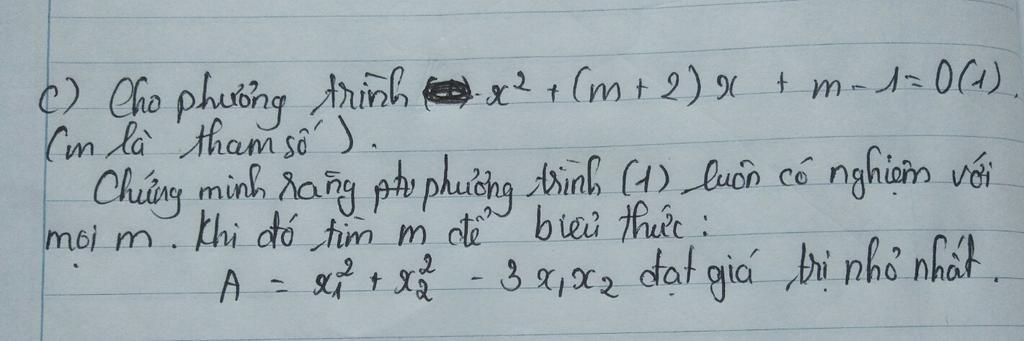 c) Cho phương trình x² + (m + 2) x + m - 1 = 0 (1).
(m là tham số).
Chứng minh rằng phương trình (1) luôn có nghiệm với
mọi m. Khi đó tìm m để biểu thức:
A = x₁² + x₂² - 3 x₁x₂ đạt giá trị nhỏ nhất.